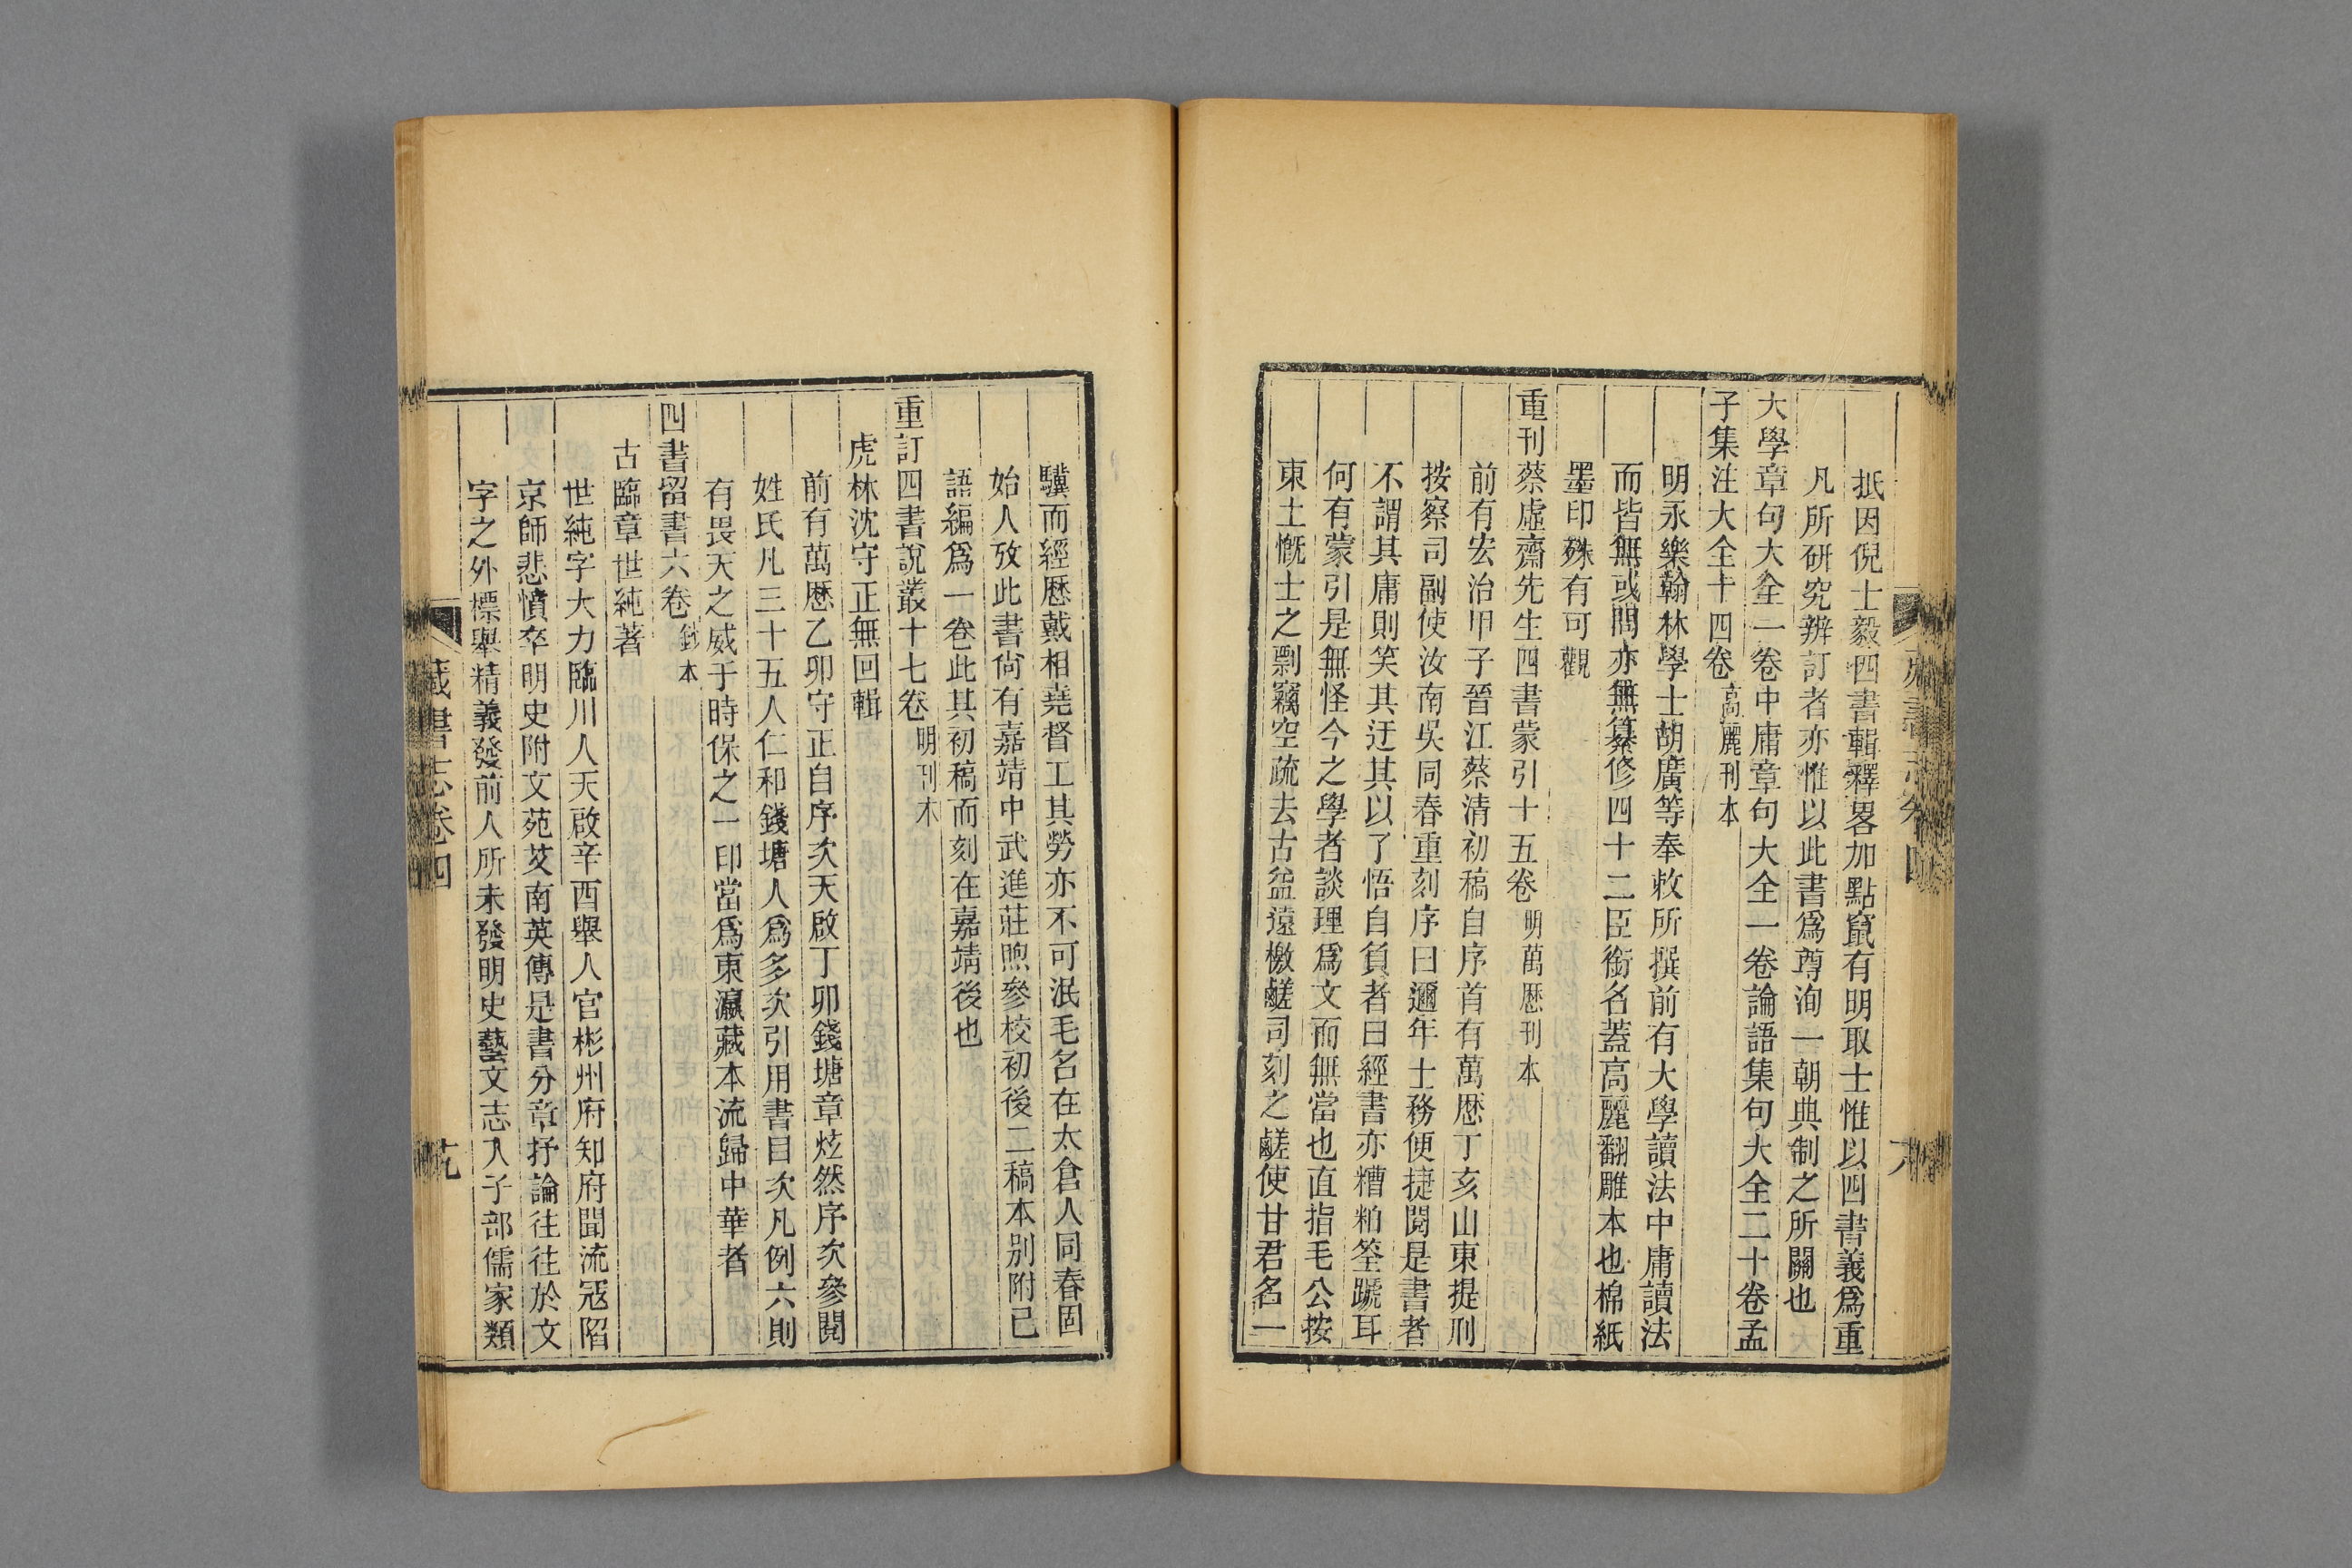 抵因倪士毅四書輯釋畧加點竄有明取士惟以四書義爲重
凡所研究辨訂者亦惟以此書爲尊洵一朝典制之所關也
大學章句大全一卷中庸章句大全一卷論語集句大全二十卷孟
子集注大全十四卷 高麗刊本
明永樂翰林學士胡廣等奉敕所撰前有大學讀法中庸讀法
而皆無或問亦無纂修四十二臣銜名蓋高麗翻雕本也棉紙
墨印殊有可觀
重刊蔡虛齋先生四書蒙引十五卷 明萬厯刊本
前有宏治甲子晉江蔡清初稿自序首有萬厯丁亥山東提刑
按察司副使汝南吳同春重刻序曰邇年士務便捷閱是書者
不謂其庸則笑其迂其以了悟自負者曰經書亦糟粕筌蹏耳
何有蒙引是無怪今之學者談理爲文而無當也直指毛公按
東土慨士之剽竊空疏去古益遠檄鹺司刻之鹺使甘君名一
驥而經厯戴相堯督工其勞亦不可泯毛名在太倉人同春固
始人攷此書尙有嘉靖中武進莊煦參校初後二稿本別附已
語編爲一卷此其初稿而刻在嘉靖後也
重訂四書說叢十七卷 明刊本
虎林沈守正無回輯
前有萬厯乙卯守正自序次天啟丁卯錢塘章炫然序次參閱
姓氏凡三十五人仁和錢塘人爲多次引用書目次凡例六則
有畏天之威于時保之一印當爲東瀛藏本流歸中華者
四書留書六卷 鈔本
古臨章世純著
世純字大力臨川人天啟辛酉舉人官彬州府知府聞流冦陷
京師悲憤卒明史附文苑艾南英傳是書分章抒論往往於文
字之外標舉精義發前人所未發明史藝文志入子部儒家類
藏書志卷四